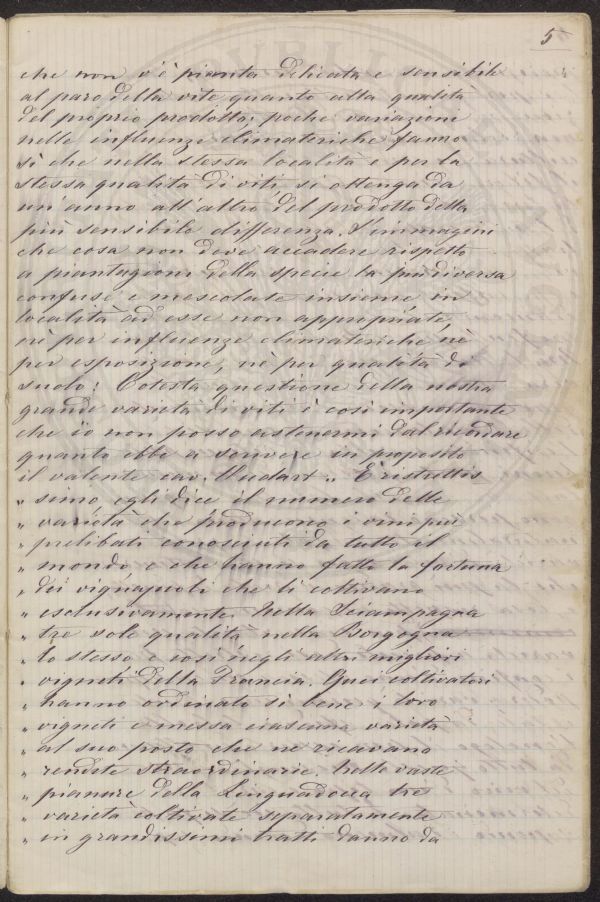 5
che non v'è pianta delicata e sensibile
al paro della vite quanto alla qualità
del proprio prodotto; poche variazioni
nelle influenze climateriche fanno
sì che nella stessa località e per la
stessa qualità di viti si ottenga da
un'anno all'altro del prodotto della
più sensibile differenza. S'immagini
che cosa non deve accadere rispetto
a piantagioni della specie la più diversa
confuse e mescolate insieme in
località ad esse non appropriate,
nè per influenze climateriche, nè
per esposizione, nè per qualità di
suolo! Cotesta questione della nostra
grande varietà di viti è così importante
che io non posso astenermi dal ricordare
quanto ebbe a scrivere in proposito
il valente cav. Oudart „ È ristrettis
„ simo egli dice il numero delle
„ varietà che producono i vini più
„ prelibati conosciuti da tutto il
„ mondo e che hanno fatto la fortuna
„ dei vignajuoli che li coltivano
„ esclusivamente. Nella Sciampagna
„ tre sole qualità nella Borgogna
„ lo stesso e così negli altri migliori
„ vigneti della Francia. Quei coltivatori
„ hanno ordinato sì bene i loro
„ vigneti e messa ciascuna varietà
„ al suo posto che ne ricavano
„ rendite straordinarie. Nelle vaste
„ pianure della Linguadocca tre
„ varietà coltivate separatamente
„ in grandissimi tratti danno da